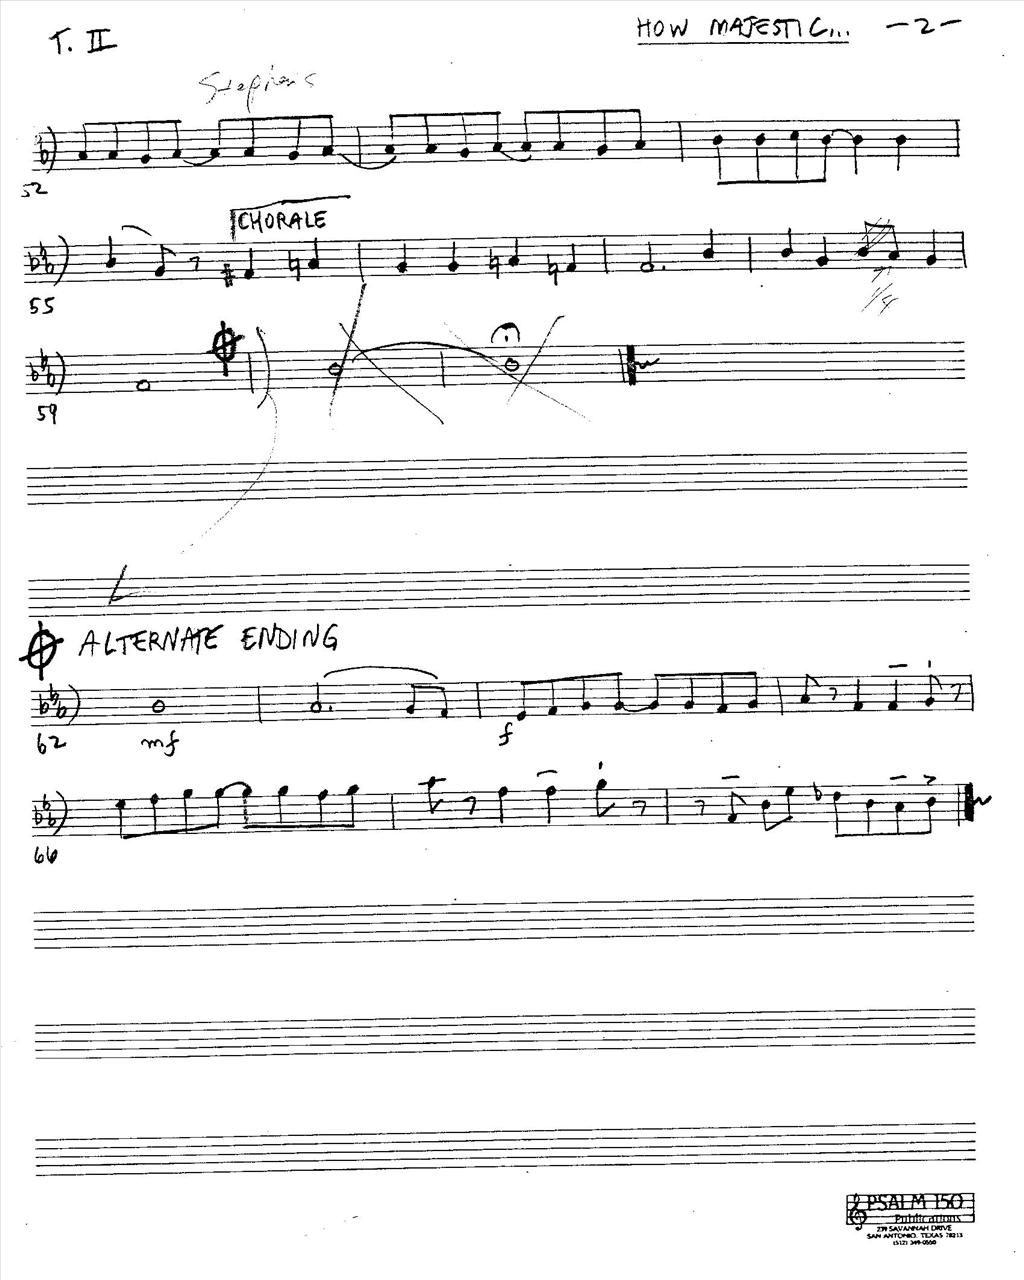 T. II
HOW MAJESTIC... -2-
Stephens
52
CHORALE
55
59
ALTERNATE ENDING
62 mf f
66
PSALM 150
Publications
239 SAVANNAH DRIVE
SAN ANTONIO, TEXAS 78213
(512) 349-0550